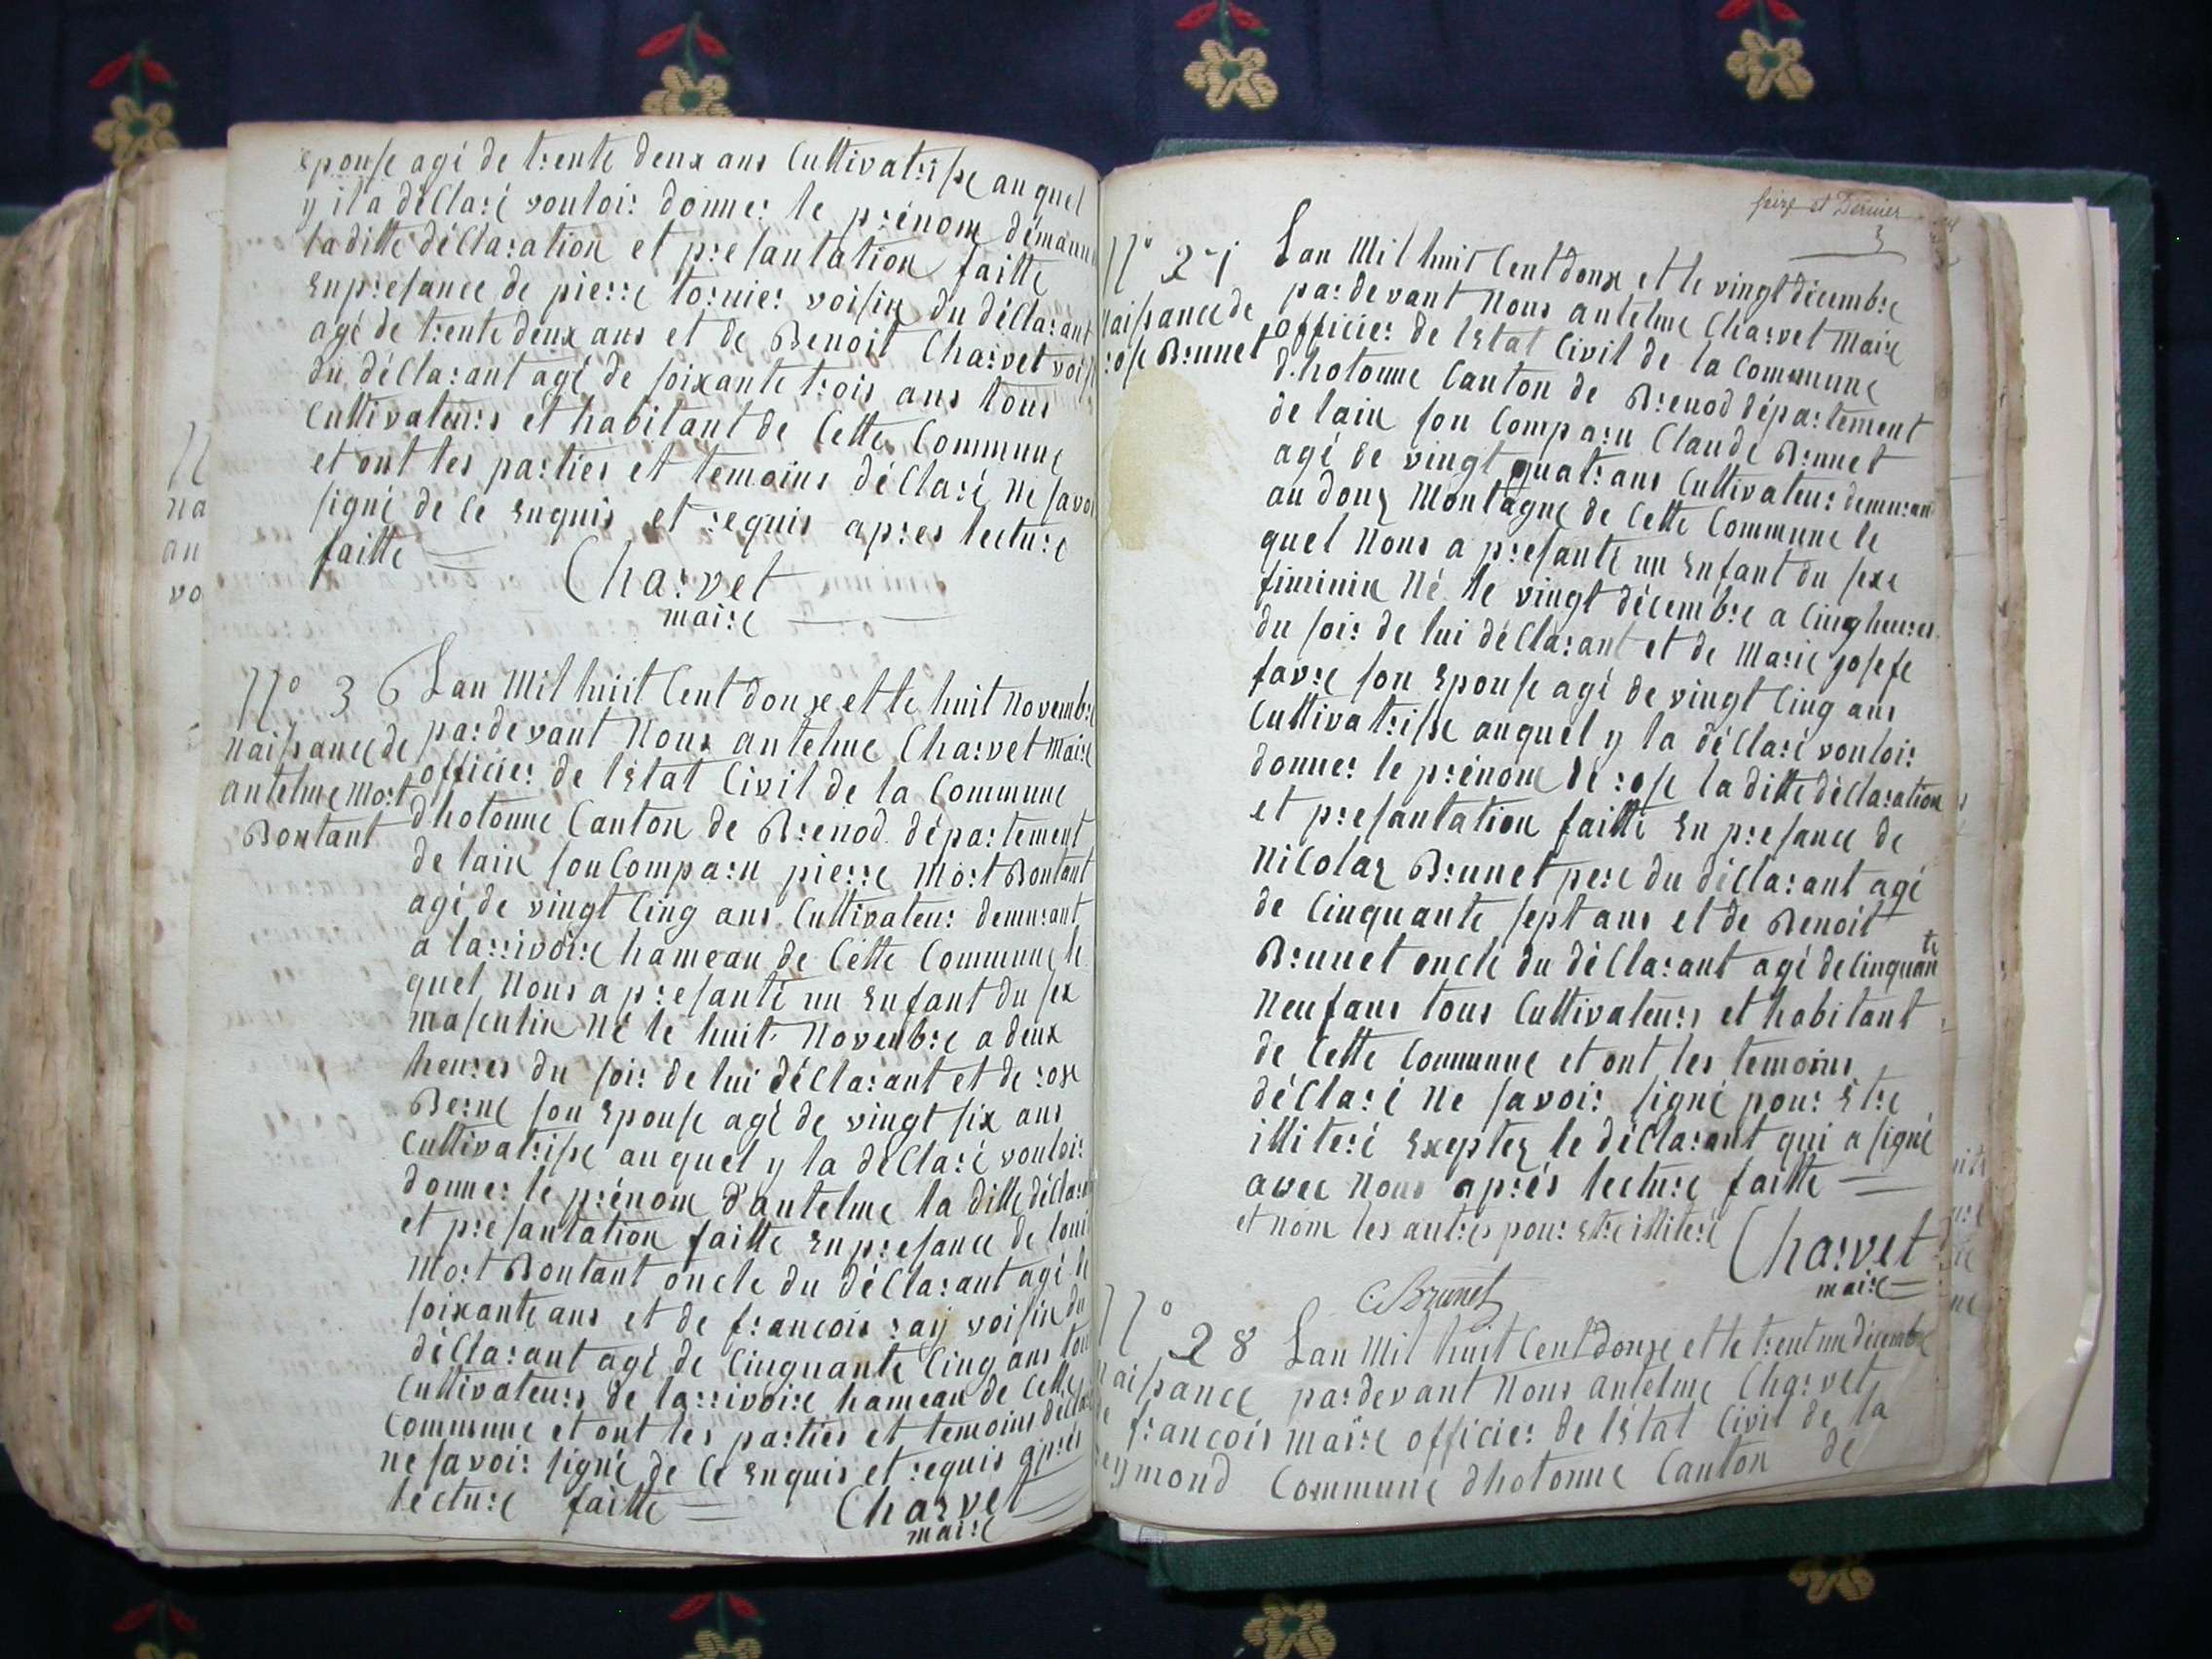 epouse agé de trente deux ans Cultivatrisse au quel
y il a déClaré vouloir donner le prénom démann
la ditte déClaration et presantation faitte
Enpresance de pierre tornier voisin du déClarant
agé de trente deux ans et de Benoit Charvet vois
du déClarant agé de soixante trois ans tous
Cultivateurs et habitant de Cette Commune
et ont les parties et temoins déClaré Ne savoi
signé de Ce Enquis et requis apres lecture
faitte
Charvet
maire
N° 3 6
Naissance de
antelme Mort
Bontant
Lan Mil huit Cent douze et le huit Novembre
pardevant Nous antelme Charvet Maire
officier de lEtat Civil de la Commune
dhotonne Canton de Brenod département
de lain son Comparu pierre Mort Bontant
agé de vingt Cinq ans Cultivateur demurant
a larrivoire hameau de Cette Commune le
quel Nous a presanté un Enfant du sex
masculin Né le huit Novenbre a deux
heures du soir de lui déClarant et de rose
Berne son Epouse agé de vingt six ans
Cultivatrisse au quel y la déClaré vouloir
donner le prénom d'antelme la ditte déClara
et presantation faitte Enpresance de loui
Mort Bontant oncle du déClarant agé de
soixante ans et de francois ray voisin du
déClarant agé de Cinquante Cinq ans tou
Cultivateurs de larrivoire hameau de Cette
Commune et ont les parties et temoins décla
ne savoir signé de Ce Enquis et requis après
lecture faitte
Charvet
maire
N
na
an
vo
seize et Dernier
N° 27
Naissance de
rose Brunet
Lan Mil huit Cent douze et le vingt décembre
pardevant Nous antelme Charvet Maire
officier de lEtat Civil de la Commune
d.hotonne Canton de Brenod département
de lain son Comparu Claude Brunet
agé de vingt quatr ans Cultivateur demuran
au douz Montagne de Cette Commune le
quel Nous a presanté un Enfant du sexe
fiminin Né le vingt décembre a Cinq heures
du soir de lui déClarant et de Marie josefe
favre son Epouse agé de vingt Cinq ans
Cultivatrisse auquel y la déClaré vouloir
donner le prénom de rose la ditte déClaration
et presantation faitte En presance de
Nicolaz Brunet pere du déClarant agé
de Cinquante sept ans et de Benoit
Brunet oncle du déClarant agé de Cinquante
Neuf ans tous Cultivateurs et habitant
de Cette Commune et ont les temoins
déClaré Ne savoir signé pour Etre
illiteré Exeptez le déClarant qui a signé
avec Nous après lecture faitte
et nom les autres pour Etre illiteré
Charvet
maire
C Brunet
N° 28
Naissance
de francois
reymond
Lan Mil huit Cent douze et le trent un décembre
pardevant Nous antelme Charvet
maire officier de lEtat Civil de la
Commune dhotonne Canton de